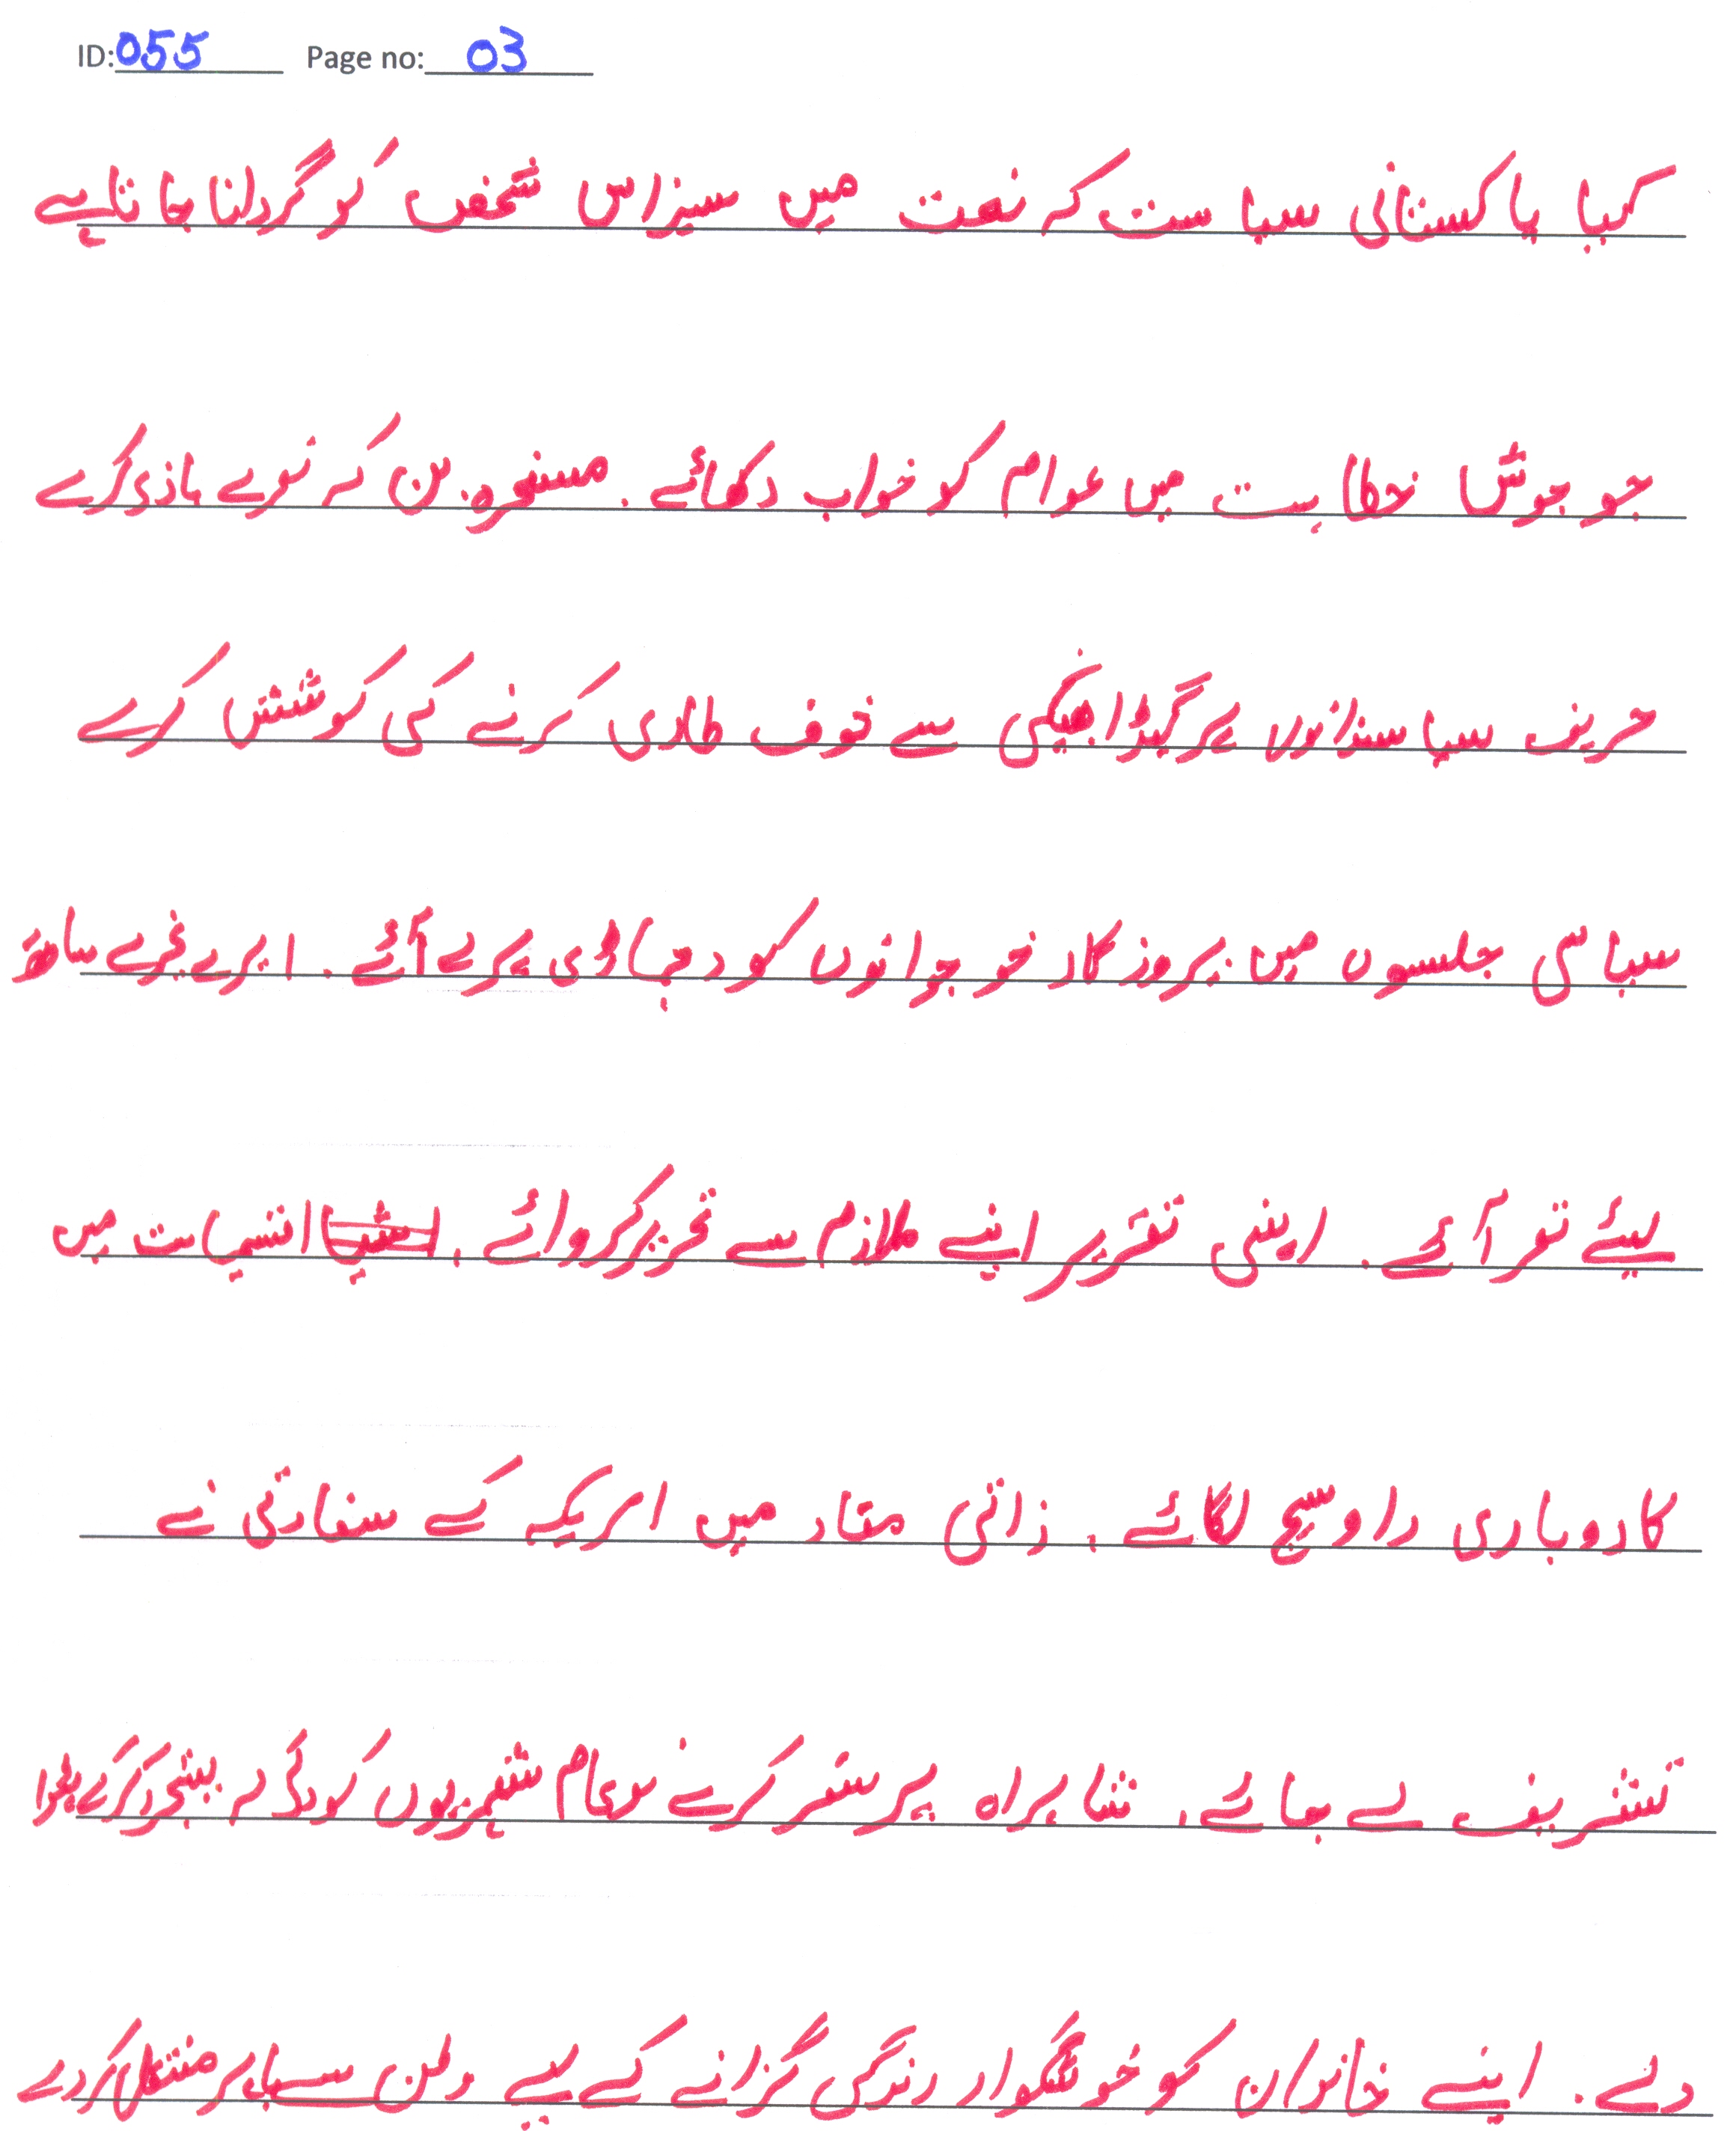 ID: 055 Page no: 03
کیا پاکستانی سیاست کہ نعت میں سیزاس شخص کو گردانا جاتا ہے
جو جوش خطابت میں عوام کو خواب دکھائے۔ مسنوہ بن کر نوے بازی کرے
حریف سیاستدانوں پر گیڈا بھبکی سے خوف طاری کرنے کی کوشش کرے
سیاسی جلسوں میں بروزگار خوجوانوں کو دھیاڑی پر لے آئے۔ ایرے غیرے ساتھ
لیئے نفر آئے۔ اپنی تقریر اپنے ملازم سے تحریر کروائے۔ انسیات میں
کاروباری راوسیح لگائے۔ ذاتی مفاد میں امریکہ کے سفارتی نے
تشریف لے جائے۔ شاہراہ پر سفر کرنے عام شہریوں کو
دے۔ اپنے خاندان کو خوشگوار زندگی گزرانے کے لیے وطن سے باہر منتقل کردے